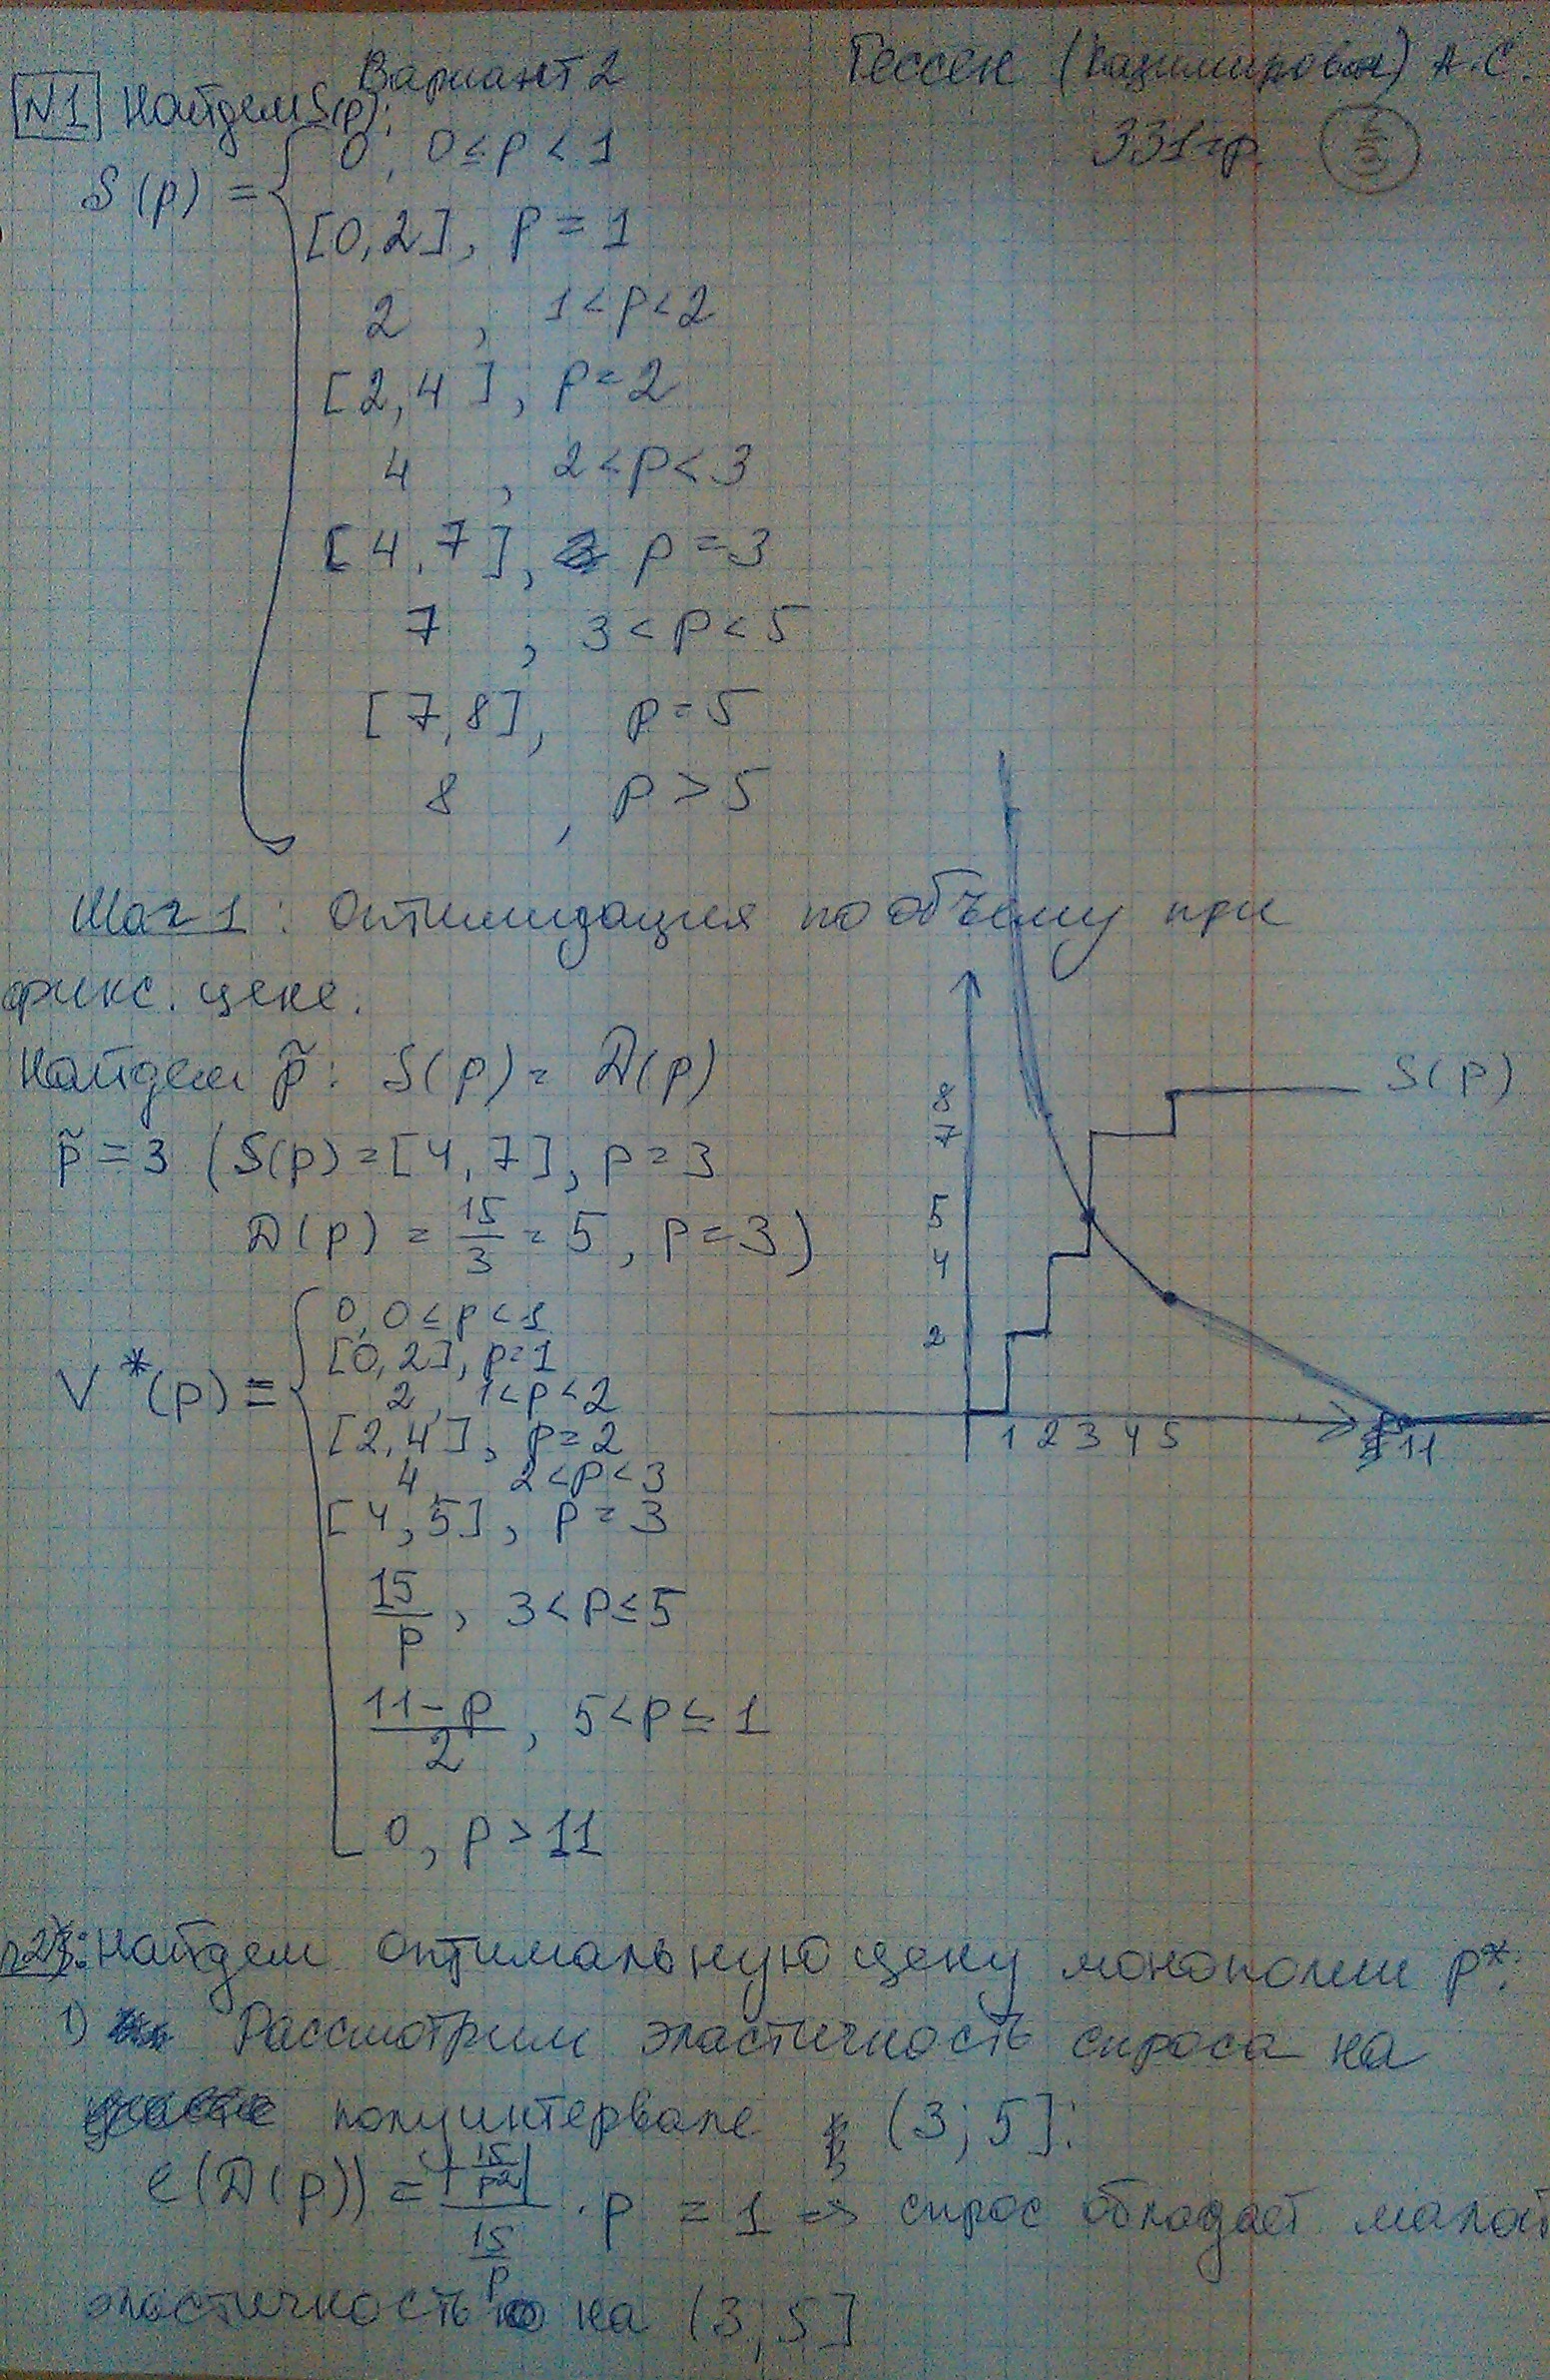 Вариант 2
Гессен (Казимирова) А.С.
331 гр.
N1 Найдем S(p):
S(p) = { 0, 0 ≤ p < 1
[0,2], p = 1
2, 1 < p < 2
[2,4], p = 2
4, 2 < p < 3
[4,7], p = 3
7, 3 < p < 5
[7,8], p = 5
8, p > 5
Шаг 1: Оптимизация по объему при
фикс. цене.
Найдем p̃: S(p) = D(p)
p̃ = 3 (S(p) = [4,7], p = 3
D(p) = 15/3 = 5, p = 3)
8
7
5
4
2
1 2 3 4 5
11
S(p)
V*(p) = { 0, 0 ≤ p < 1
[0,2], p = 1
2, 1 < p < 2
[2,4], p = 2
4, 2 < p < 3
[4,5], p = 3
15/p, 3 < p ≤ 5
(11-p)/2, 5 < p ≤ 1
0, p > 11
г2: Найдем оптимальную цену монополии p*:
1) Рассмотрим эластичность спроса на
полуинтервале (3; 5]:
e(D(p)) = |-15/p²| / (15/p) · p = 1 => спрос обладает малой
эластичностью на (3; 5]